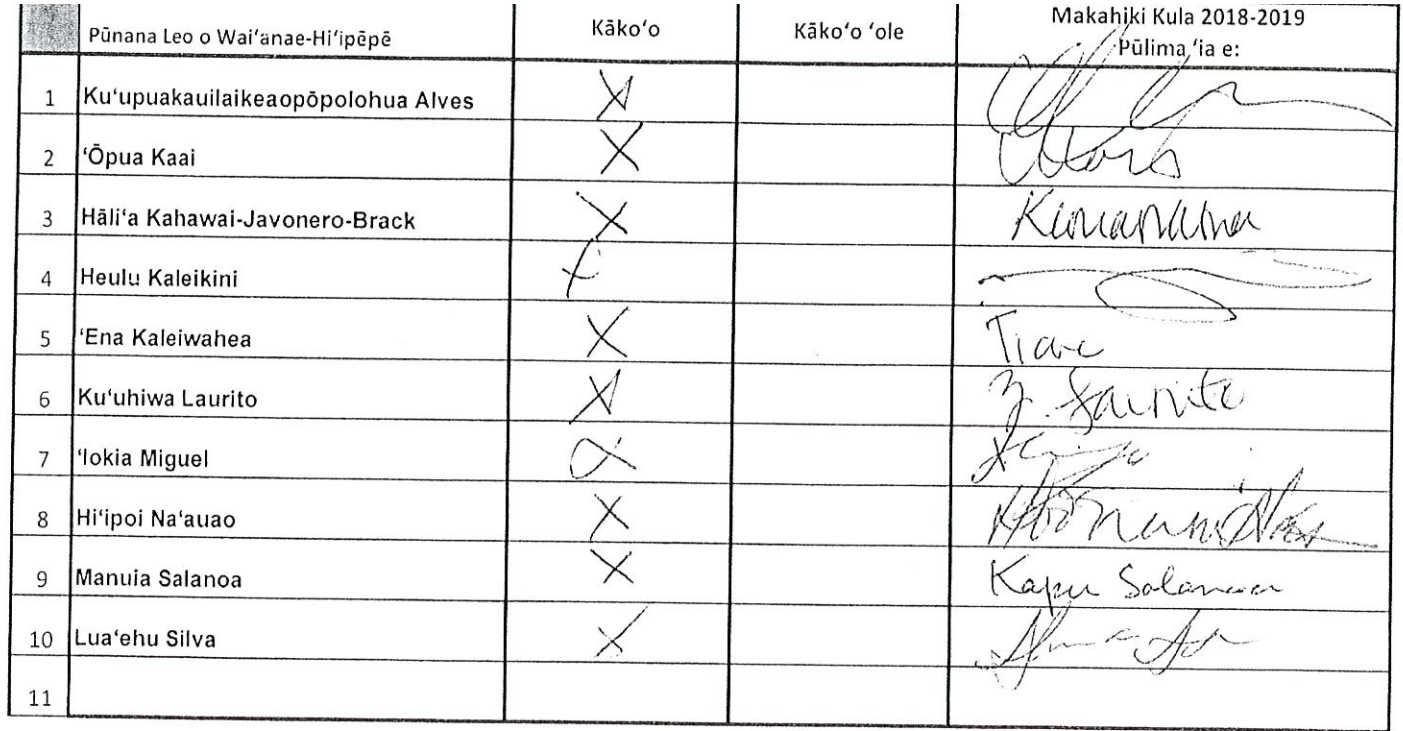 Pūnana Leo o Waiʻanae-Hiʻipēpē Kākoʻo Kākoʻo ʻole Makahiki Kula 2018-2019
Pūlima ʻia e:
1 Kuʻupuakauilaikeaopōpolohua Alves X
2 ʻŌpua Kaai X
3 Hāliʻa Kahawai-Javonero-Brack X
4 Heulu Kaleikini X
5 ʻEna Kaleiwahea X Tiare
6 Kuʻuhiwa Laurito X Z. Laurito
7 ʻIokia Miguel X
8 Hiʻipoi Naʻauao X
9 Manuia Salanoa X Kapu Salanoa
10 Luaʻehu Silva X
11